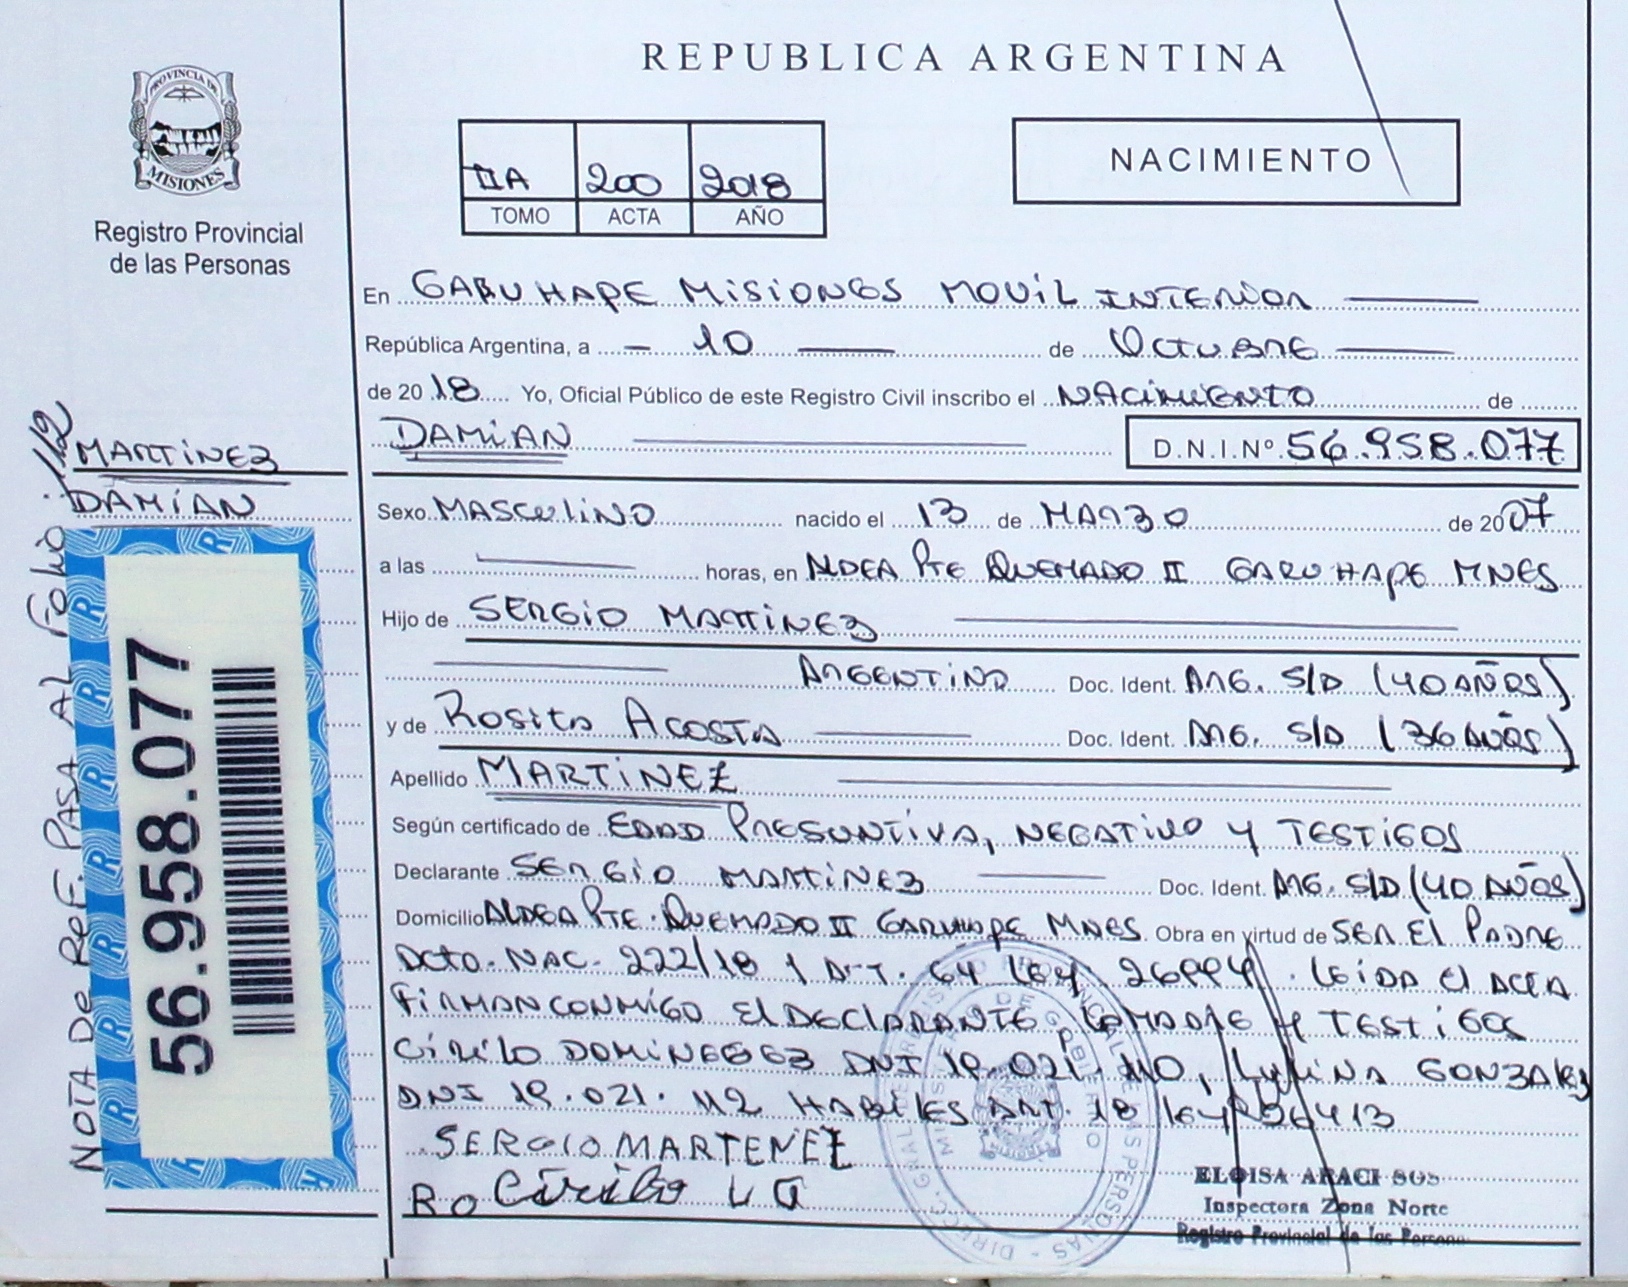 REPUBLICA ARGENTINA
PROVINCIA DE
MISIONES
Registro Provincial
de las Personas
IIA 200 2018
TOMO ACTA AÑO
NACIMIENTO
En GARUHAPE MISIONES MOVIL INTERIOR
República Argentina, a 10 de Octubre
de 2018 Yo, Oficial Público de este Registro Civil inscribo el NACIMIENTO de
DAMIAN D.N.I.Nº 56.958.077
MARTINEZ
DAMIAN
NOTA DE REF. PASA AL Folio 112
56.958.077
Sexo MASCULINO nacido el 13 de MARZO de 2007
a las horas, en ALDEA Pte QUEMADO II GARUHAPE MNES
Hijo de SERGIO MARTINEZ
ARGENTINO Doc. Ident. ARG. S/D (40 AÑOS)
y de Rosita ACOSTA Doc. Ident. ARG. S/D (36 AÑOS)
Apellido MARTINEZ
Según certificado de EDAD PRESUNTIVA, NEGATIVO Y TESTIGOS
Declarante SERGIO MARTINEZ Doc. Ident. ARG. S/D (40 AÑOS)
Domicilio ALDEA PTE. QUEMADO II GARUHAPE MNES Obra en virtud de SER El PADRE
DCTO. NAC. 222/18 Y ART. 64 ley 26994. LEIDA El ACTA
FIRMAN CONMIGO El DECLARANTE, LA MADRE Y TESTIGOS
CIRILO DOMINGUEZ DNI 19.021.110, GONZALEZ
DNI 19.021.112 HABILES ART. 18 ley 26413
SERGIO MARTENEZ
RO Cirilo L G
ELOISA ARACI SOS
Inspectora Zona Norte
Registro Provincial de las Persona